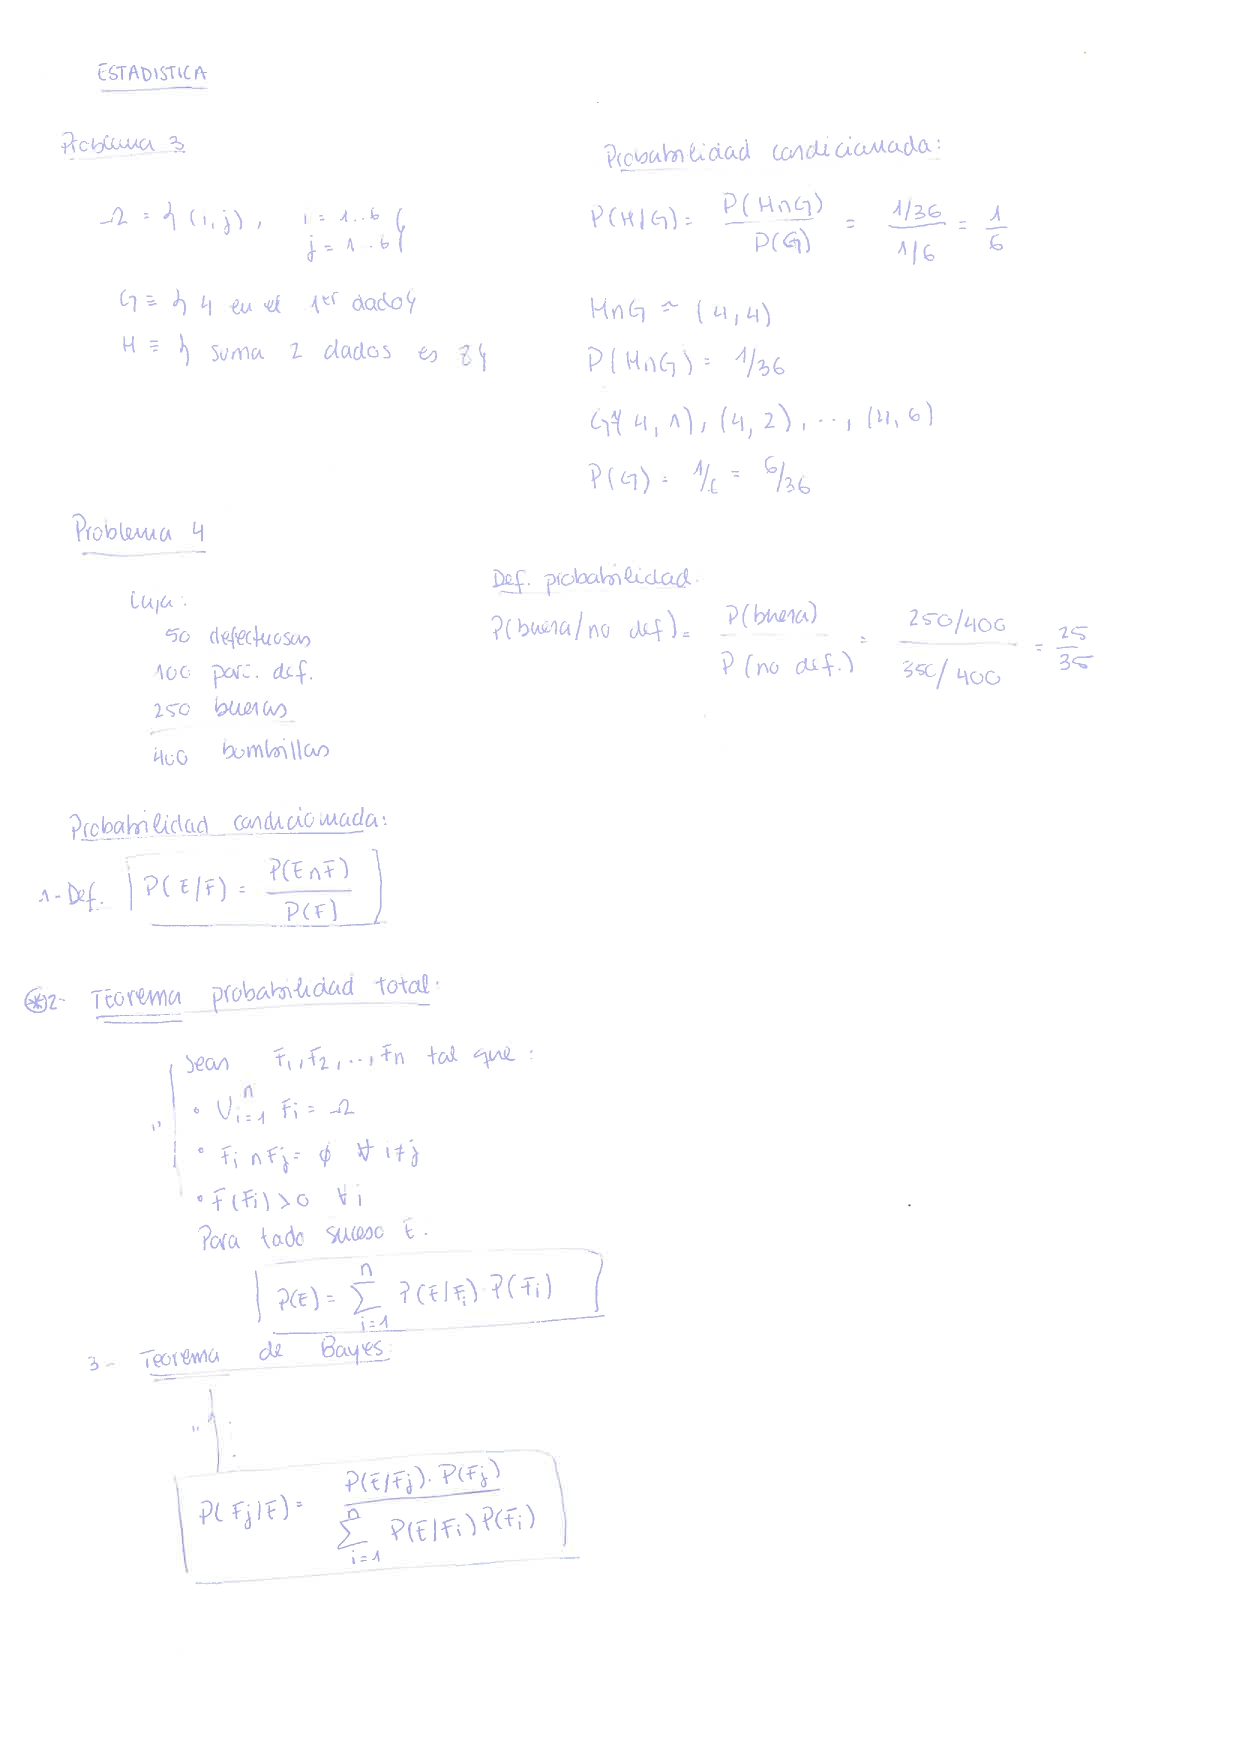 ESTADISTICA
Problema 3
Ω = { (i,j), i = 1..6
j = 1..6 }
G ≡ { 4 en el 1er dado }
H ≡ { suma 2 dados es 8 }
Probabilidad condicionada:
P(H/G) = P(H∩G) / P(G) = 1/36 / 1/6 = 1/6
H∩G ~ (4,4)
P(H∩G) = 1/36
G={(4,1), (4,2), ..., (4,6)
P(G) = 1/6 = 6/36
Problema 4
Caja:
50 defectuosas
100 parc. def.
250 buenas
400 bombillas
Def. probabilidad.
P(buena/no def) = P(buena) / P(no def.) = 250/400 / 350/400 = 25/35
Probabilidad condicionada:
1- Def. P(E/F) = P(E∩F) / P(F)
*2- Teorema probabilidad total:
Sean F1, F2, .., Fn tal que:
• U i=1 n Fi = Ω
" • Fi ∩ Fj = ∅ ∀ i≠j
• P(Fi) > 0 ∀i
Para todo suceso E.
P(E) = Σ i=1 n P(E/Fi) · P(Fi)
3- Teorema de Bayes:
" :
P(Fj/E) = P(E/Fj) · P(Fj) / Σ i=1 n P(E/Fi) P(Fi)